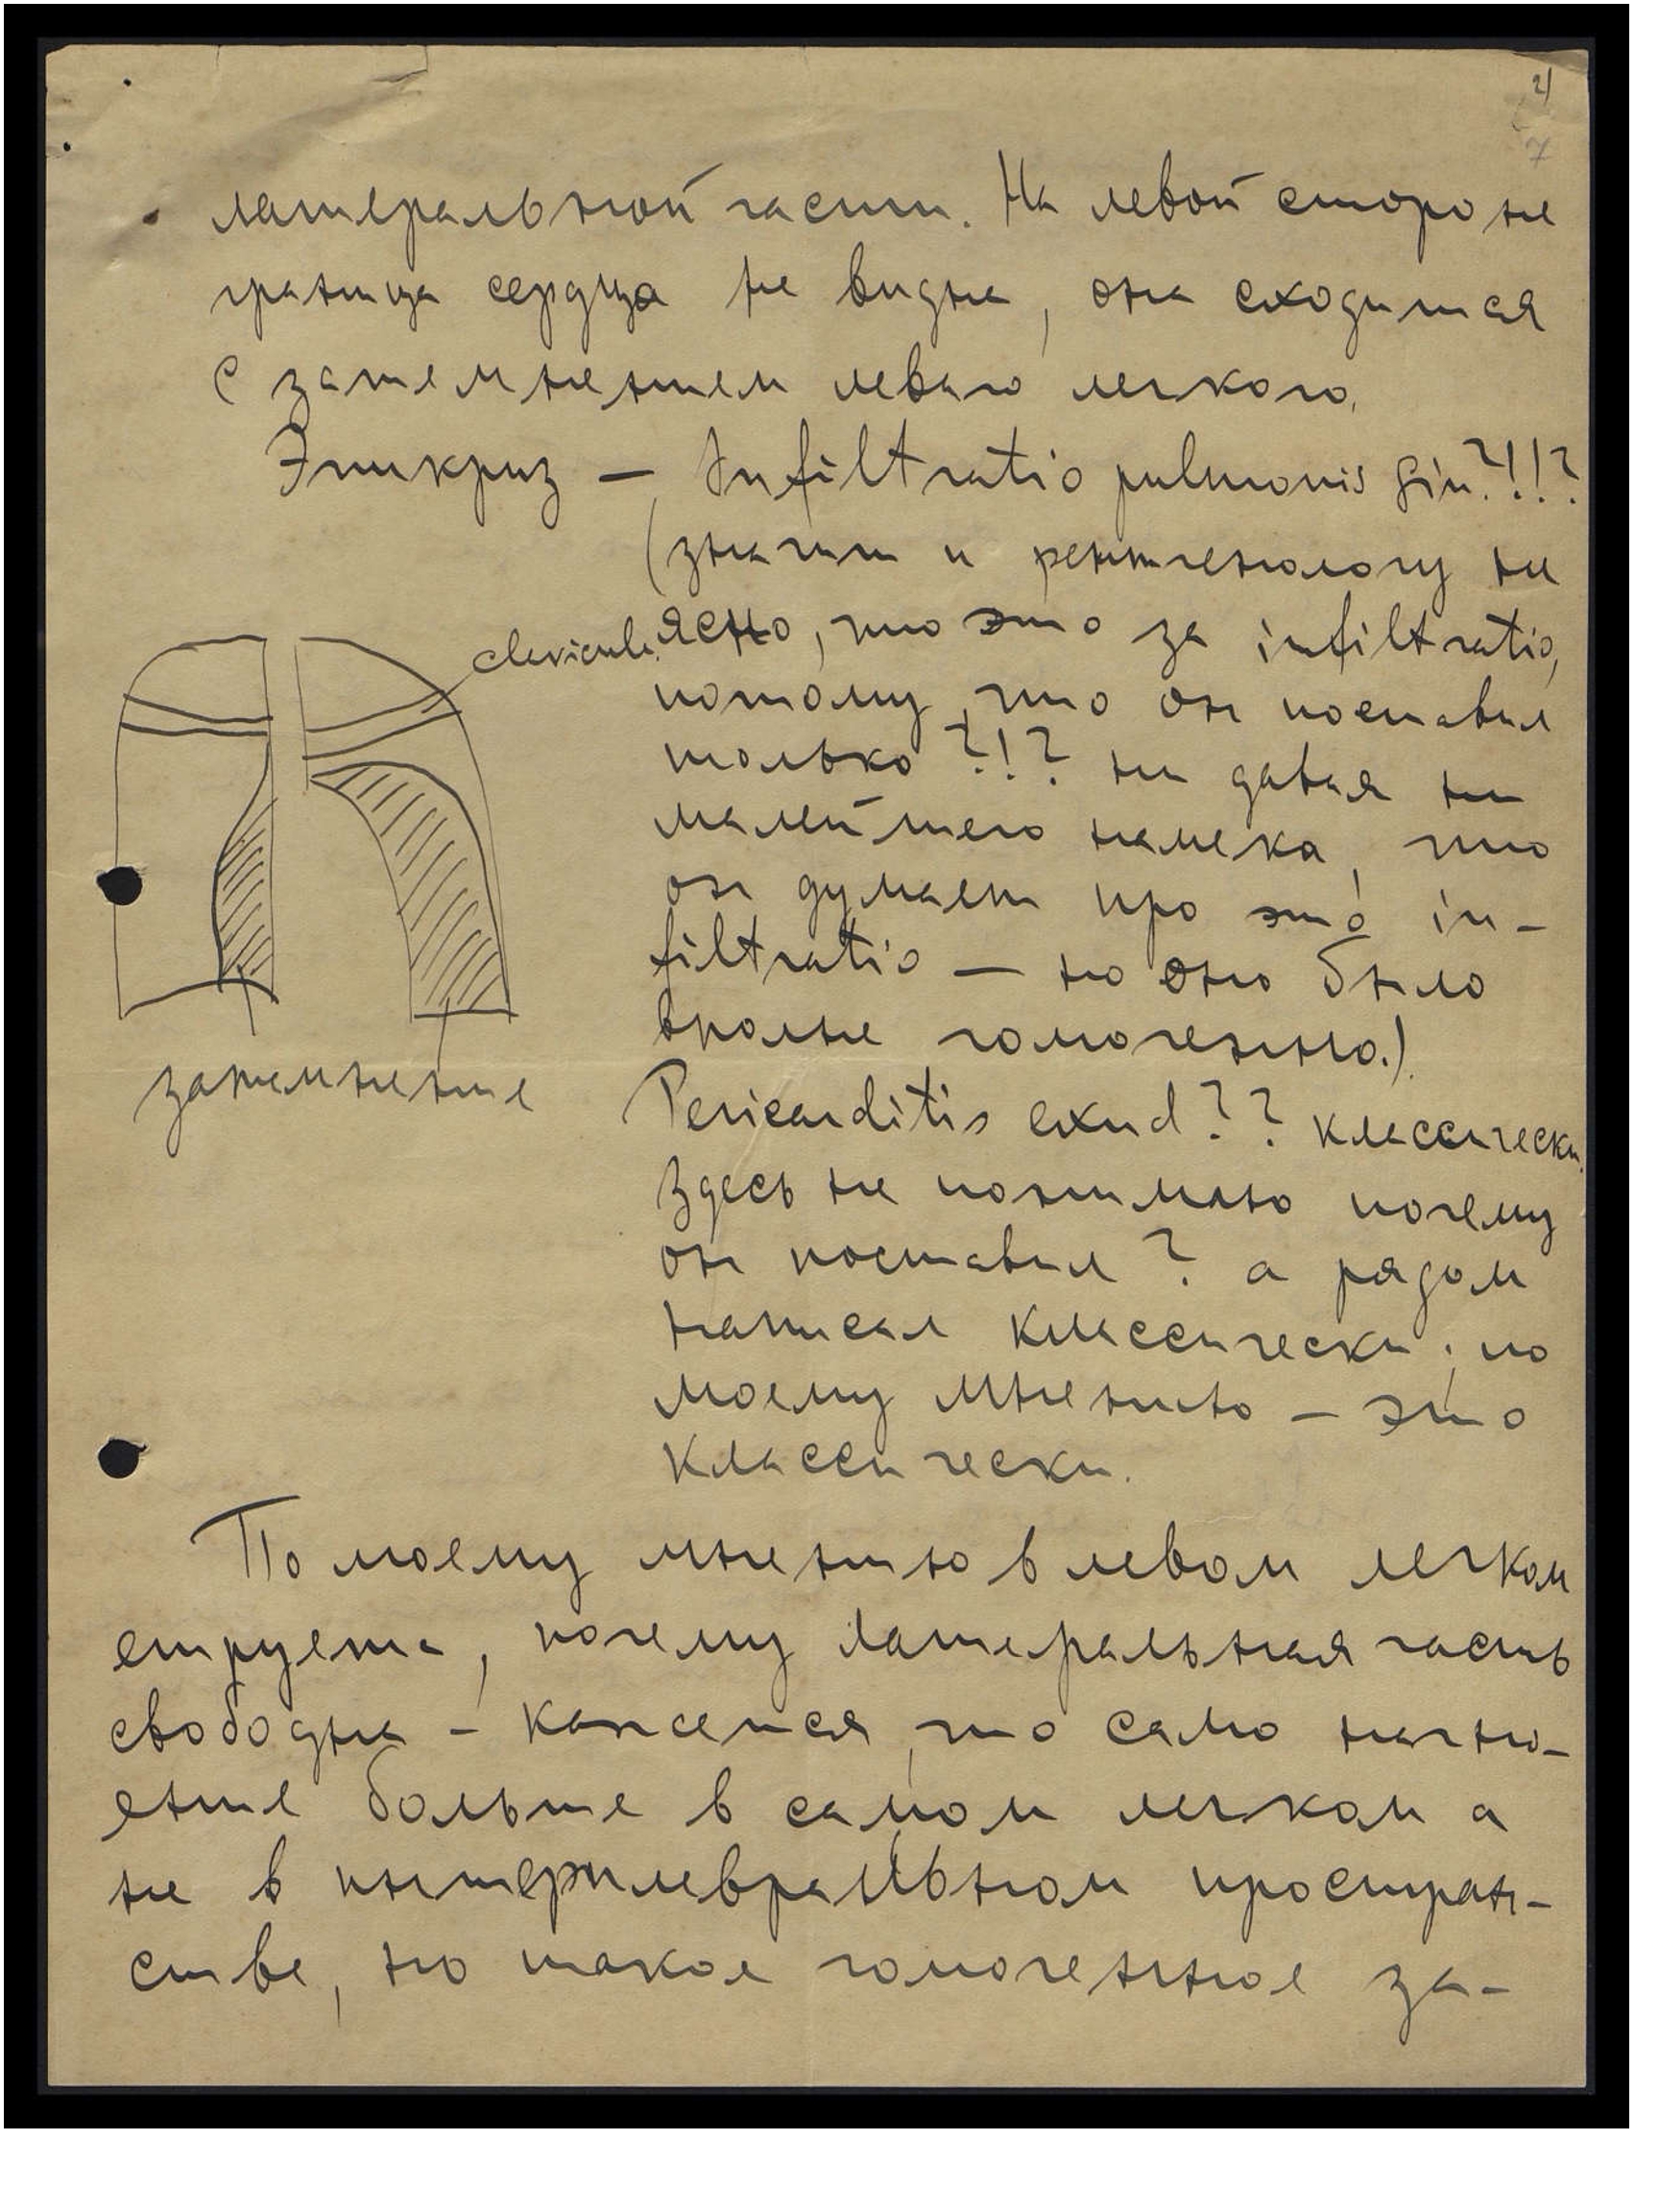 2)
7
латеральной части. На левой стороне
граница сердца не видна, она сходится
с затемнением левого легкого.
Эпикриз — Infiltratio pulmonis sin?!!?
(значит и рентгенологу не
clavicula
ясно, что это за infiltratio,
потому что он поставил
только ?!? не давая ни
малейшего намека, что
он думает про это in-
filtratio — но оно было
вполне гомогенно.)
затемнение
Pericarditis exud?? классически.
Здесь не понимаю почему
он поставил ? а рядом
написал классически; по
моему мнению — это
классически.
По моему мнению в левом легком
, почему латеральная часть
свободна — кажется, что само нагно-
ение больше в самом легком а
не в интерплевральном простран-
стве, но такое гомогенное за-